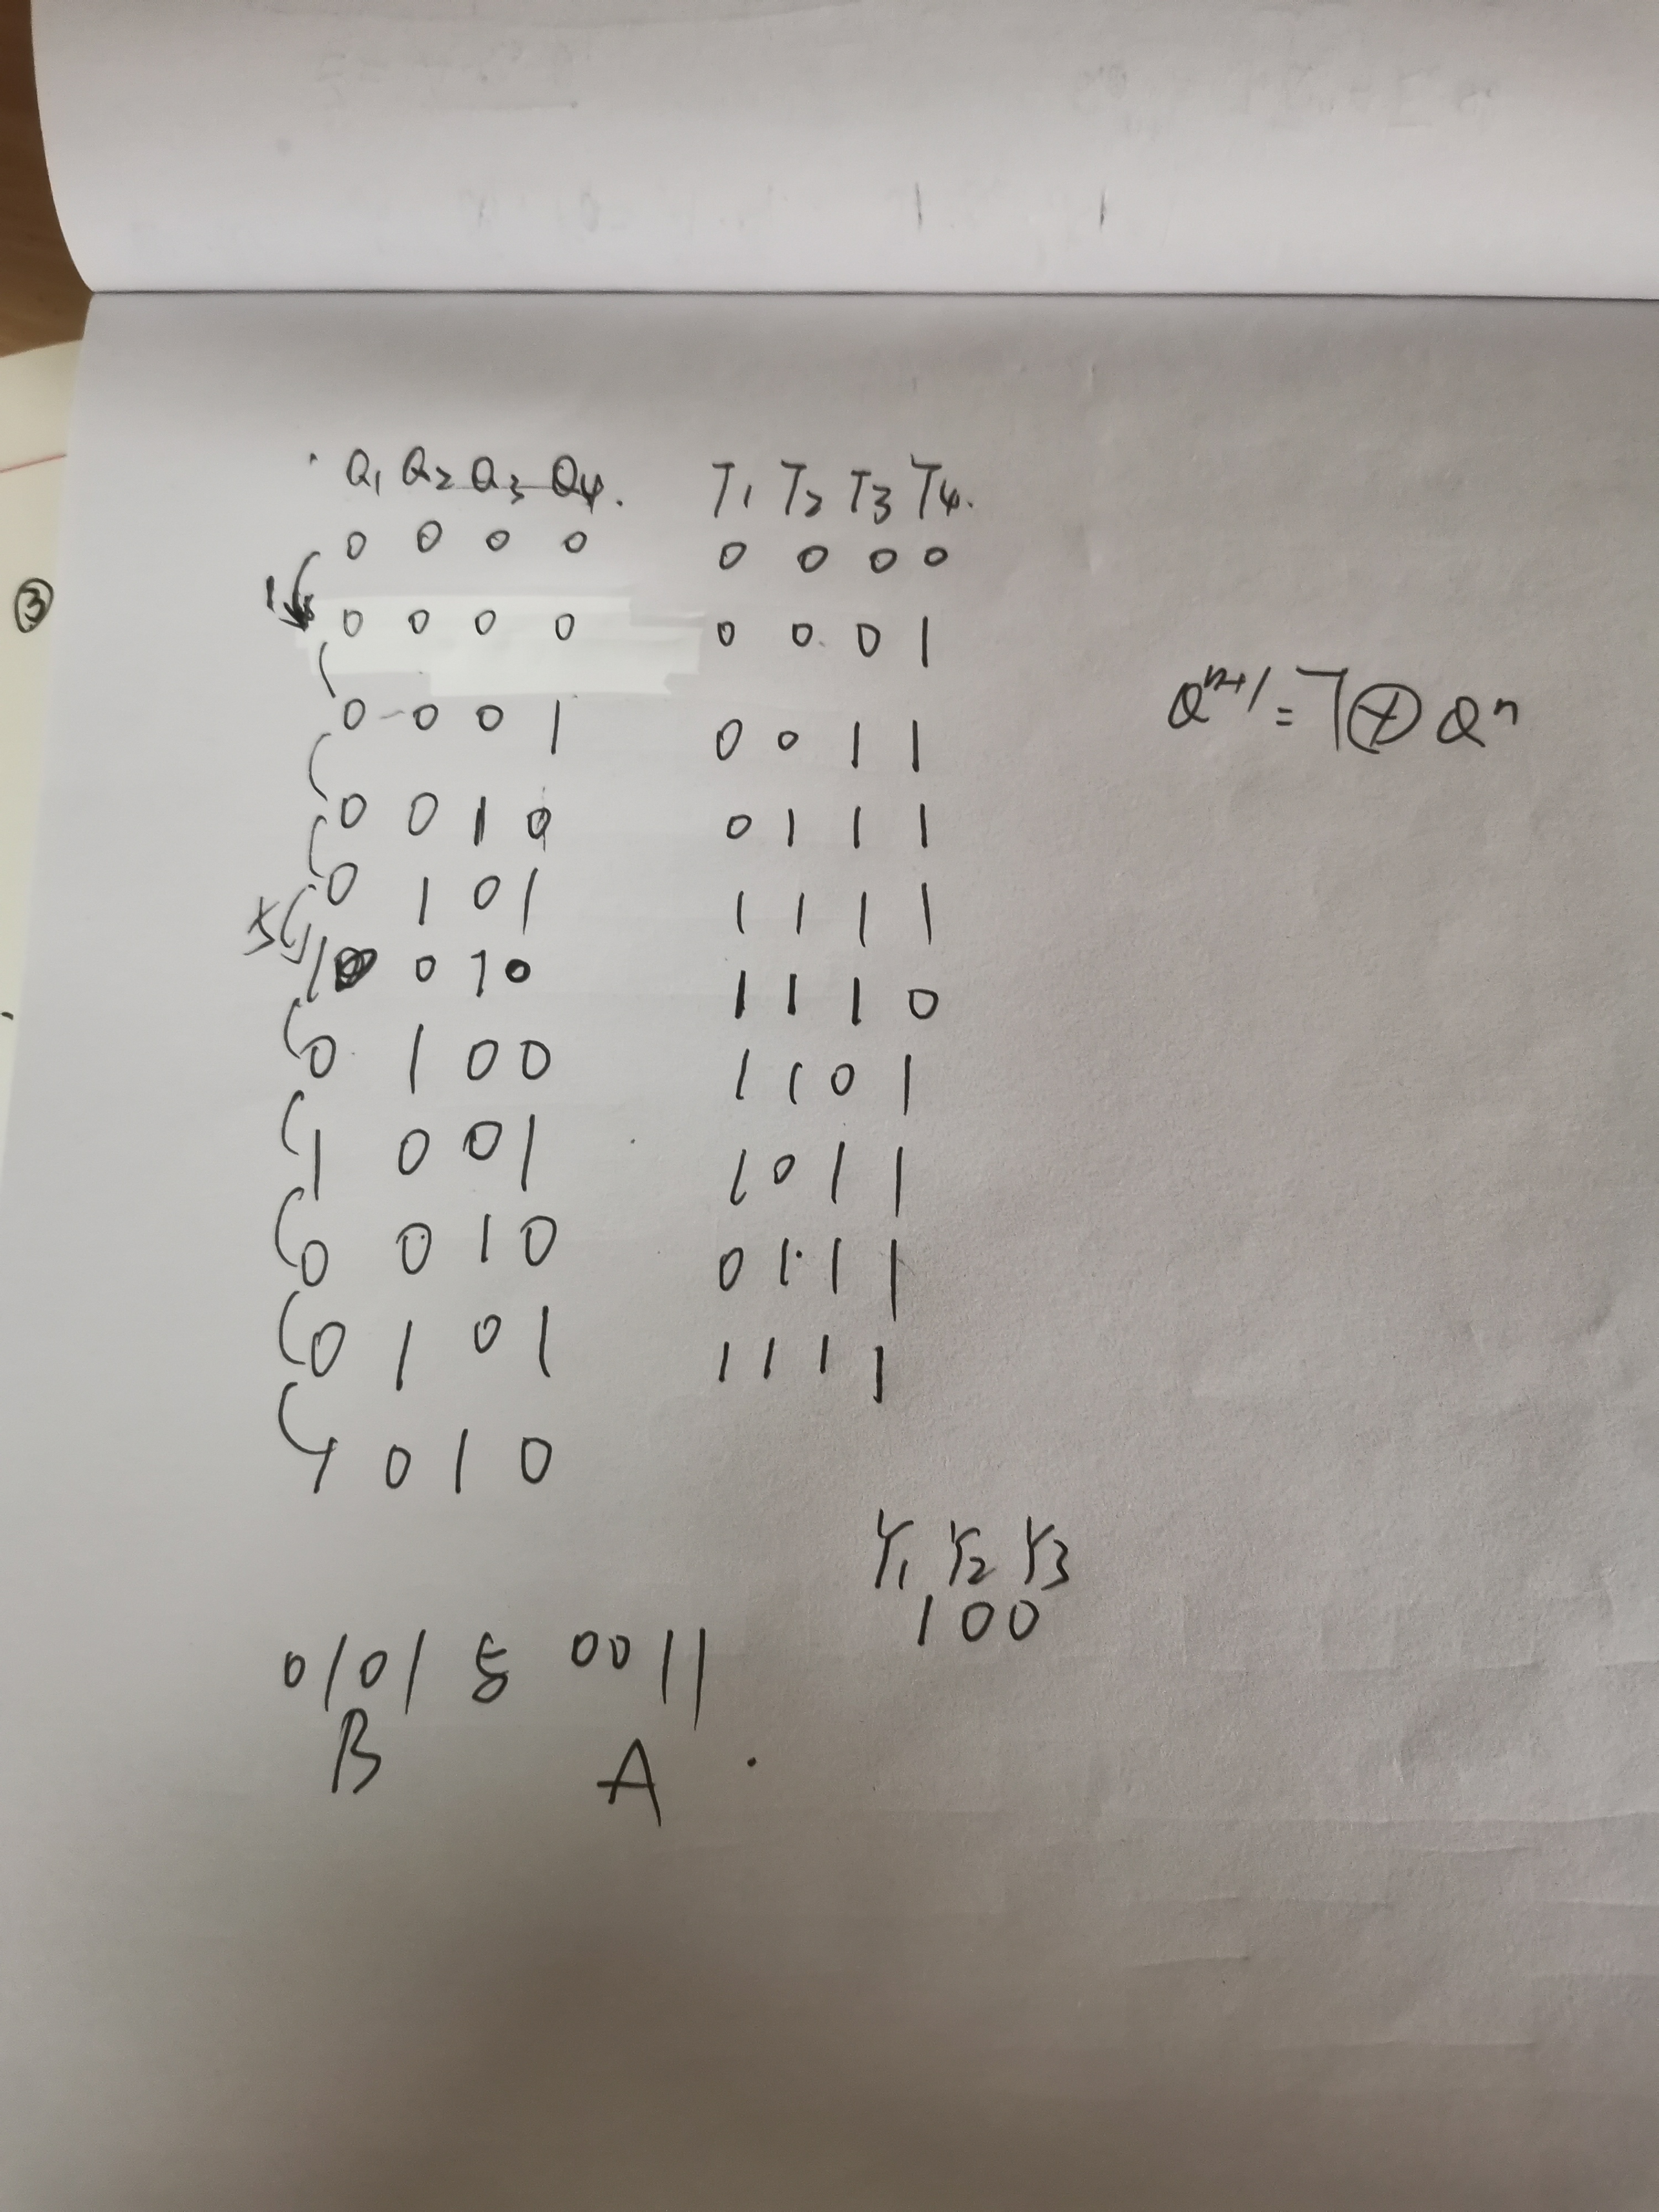 Q₁ Q₂ Q₃ Q₄. T₁ T₂ T₃ T₄.
0 0 0 0 0 0 0 0
③ 0 0 0 0 0 0 0 1
0 0 0 1 0 0 1 1 Qⁿ⁺¹ = T ⊕ Qⁿ
0 0 1 0 0 1 1 1
0 1 0 1 1 1 1 1
1 0 1 0 1 1 1 0
0 1 0 0 1 1 0 1
1 0 0 1 1 0 1 1
0 0 1 0 0 1 1 1
0 1 0 1 1 1 1 1
1 0 1 0
Y₁ Y₂ Y₃
1 0 0
0101 与 0011
B A